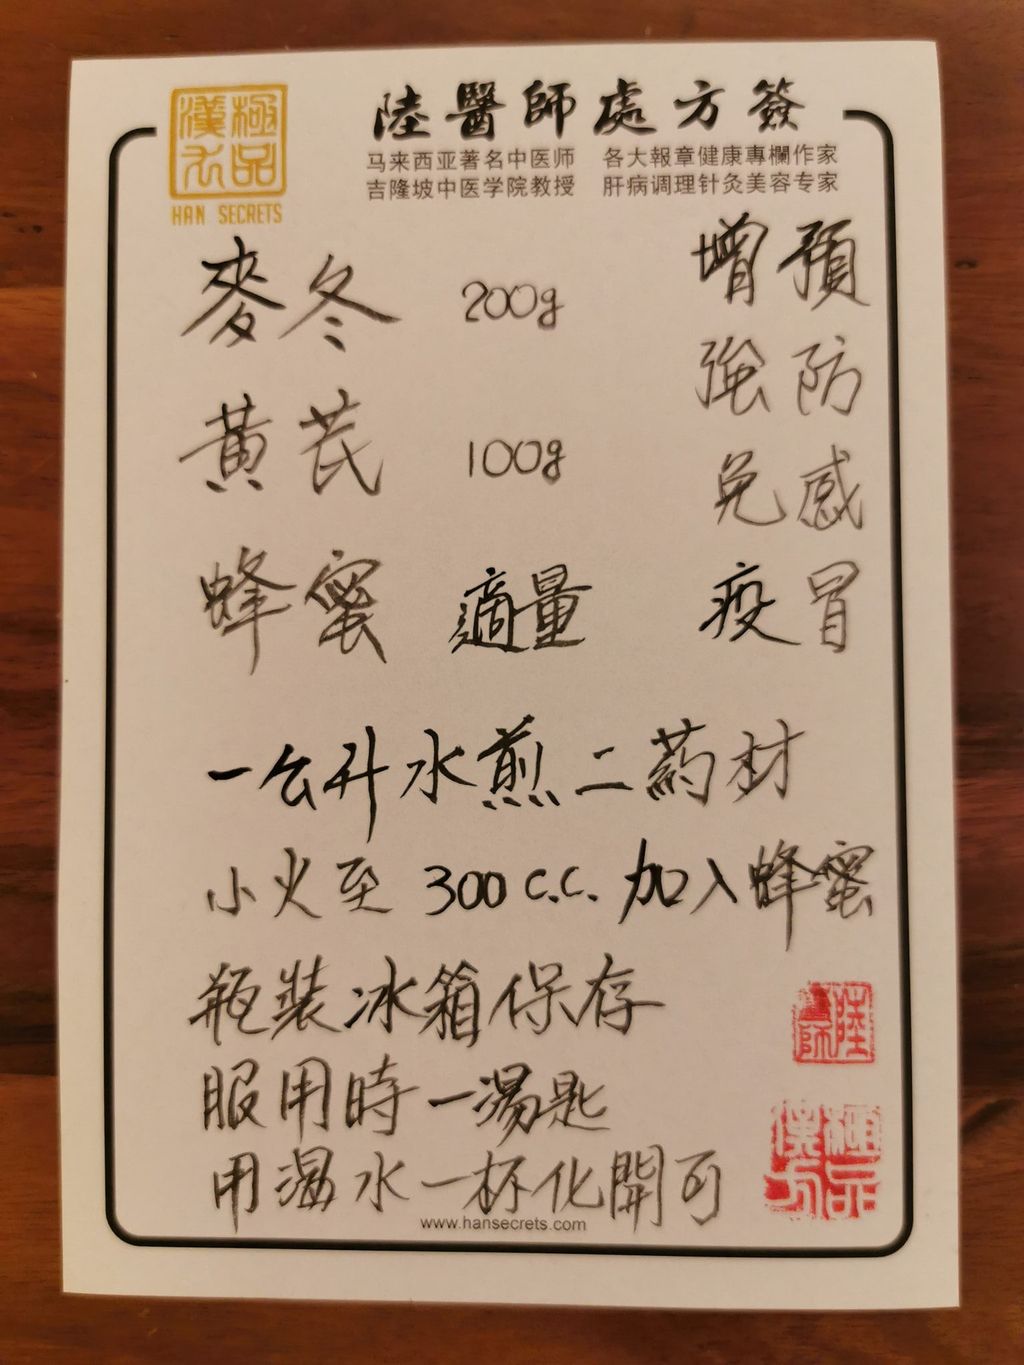 漢方極品
HAN SECRETS
陸醫師處方簽
马来西亚著名中医师 各大報章健康專欄作家
吉隆坡中医学院教授 肝病调理针灸美容专家
預防感冒
增強免疫
麥冬 200g
黃芪 100g
蜂蜜 適量
一公升水煎二药材
小火至 300 c.c. 加入蜂蜜
瓶裝冰箱保存
服用時一湯匙
用温水一杯化開可
www.hansecrets.com
陸醫師
漢方極品